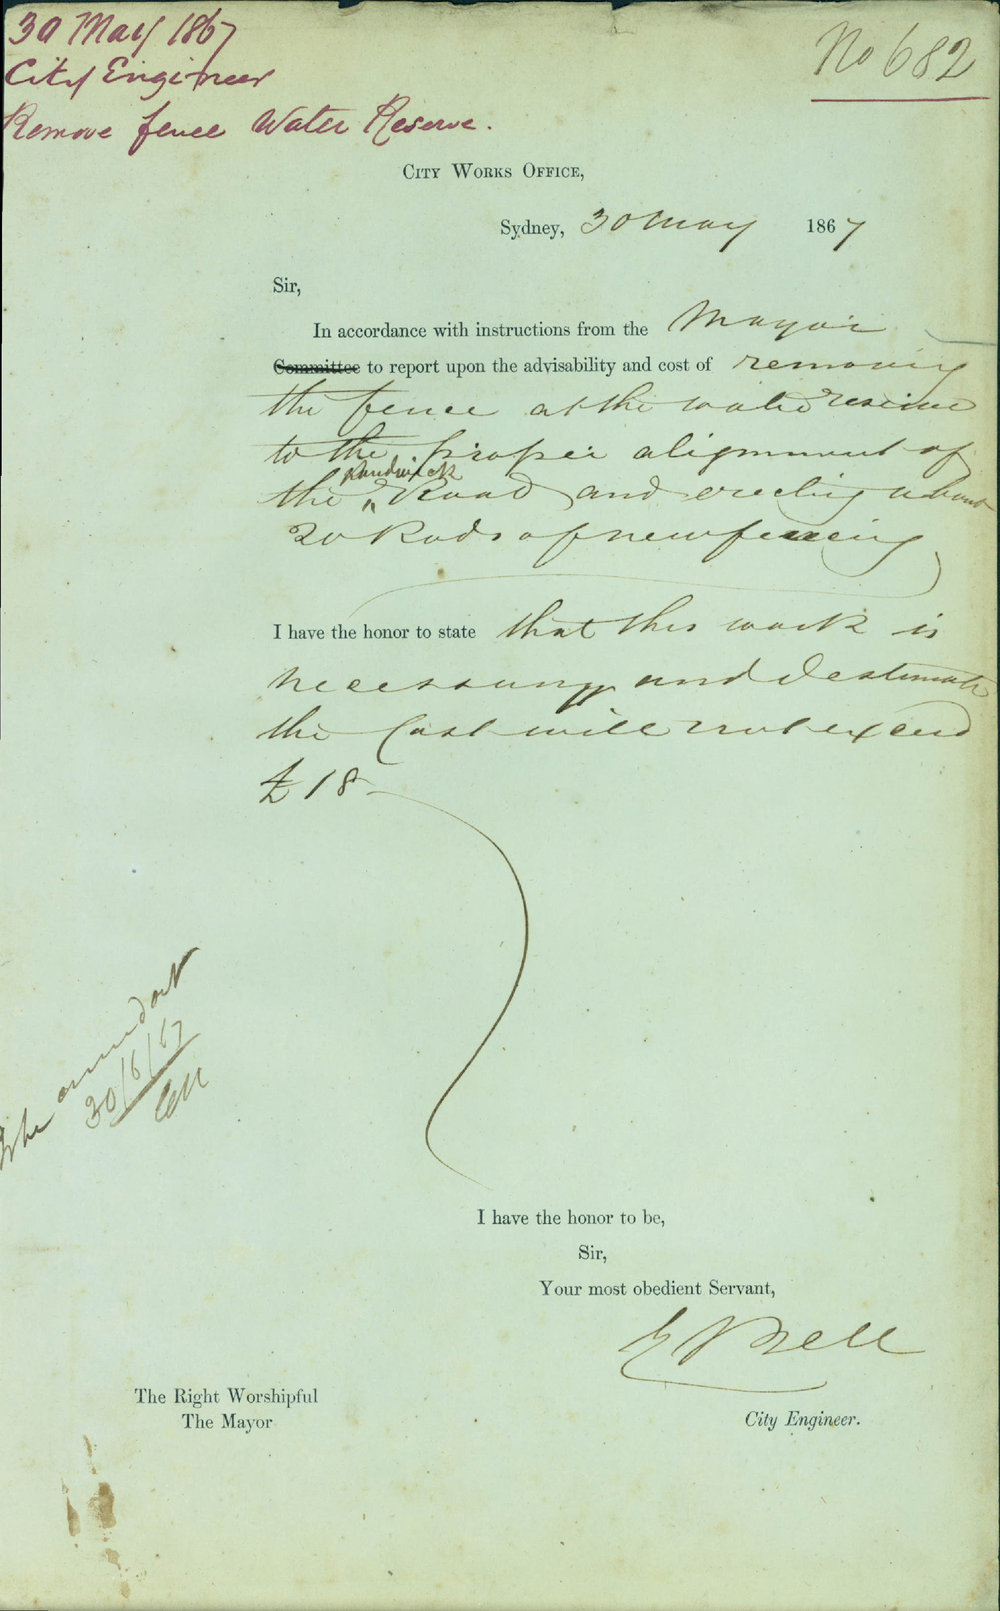 30 May 1867
City Engineer
Remove fence Water Reserve.
No 682
CITY WORKS OFFICE,
Sydney, 30 May 1867
Sir,
In accordance with instructions from the Mayor
Committee to report upon the advisability and cost of removing
the fence at the water reserve
to the proper alignment of
the Randwick Road and erecting about
20 Rods of new fencing
I have the honor to state that this work is
necessary and I estimate
the Cost will not exceed
£18
30/6/67
I have the honor to be,
Sir,
Your most obedient Servant,
E Bell
The Right Worshipful
The Mayor
City Engineer.